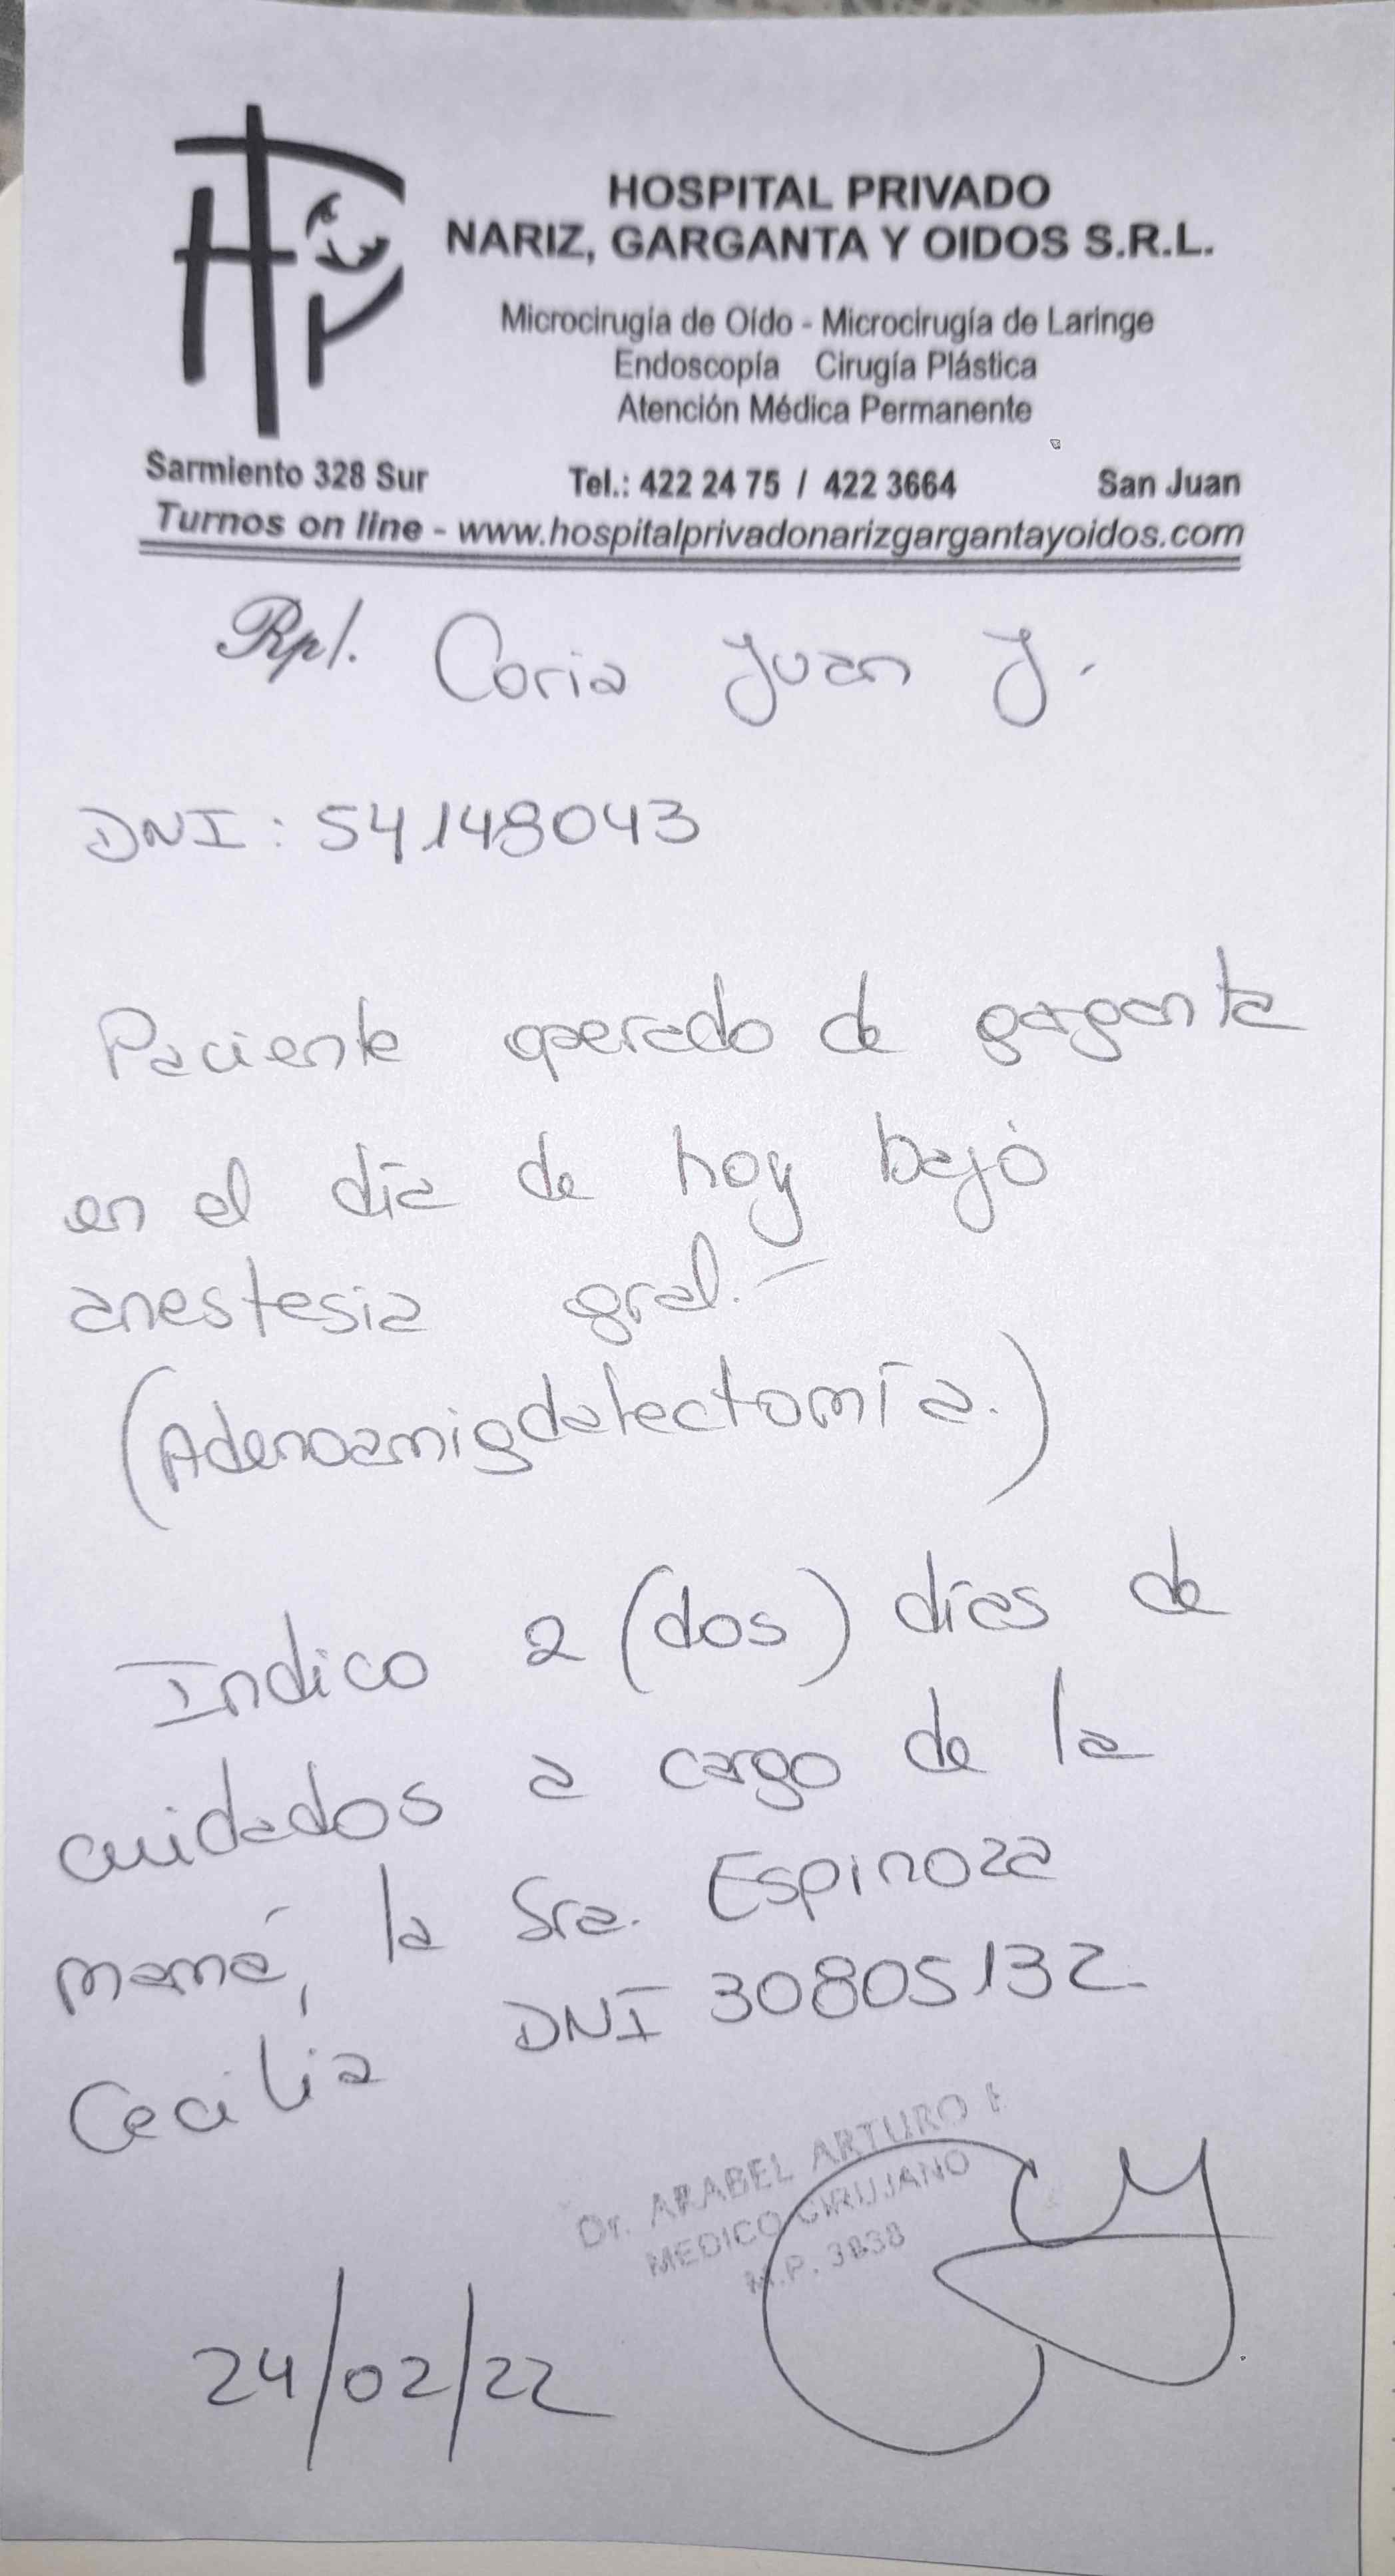 HOSPITAL PRIVADO
NARIZ, GARGANTA Y OIDOS S.R.L.
Microcirugía de Oído - Microcirugía de Laringe
Endoscopía Cirugía Plástica
Atención Médica Permanente
Sarmiento 328 Sur Tel.: 422 24 75 / 422 3664 San Juan
Turnos on line - www.hospitalprivadonarizgargantayoidos.com
Rp/. Coria Juan J.
DNI: 54148043
Paciente operado de garganta
en el día de hoy bajo
anestesia gral.-
(Adenoamigdalectomía.)
Indico 2 (dos) días de
cuidados a cargo de la
mamá, la Sra. Espinoza
Cecilia DNI 30805132
Dr. ARABEL ARTURO
MEDICO CIRUJANO
M.P. 3838
24/02/22